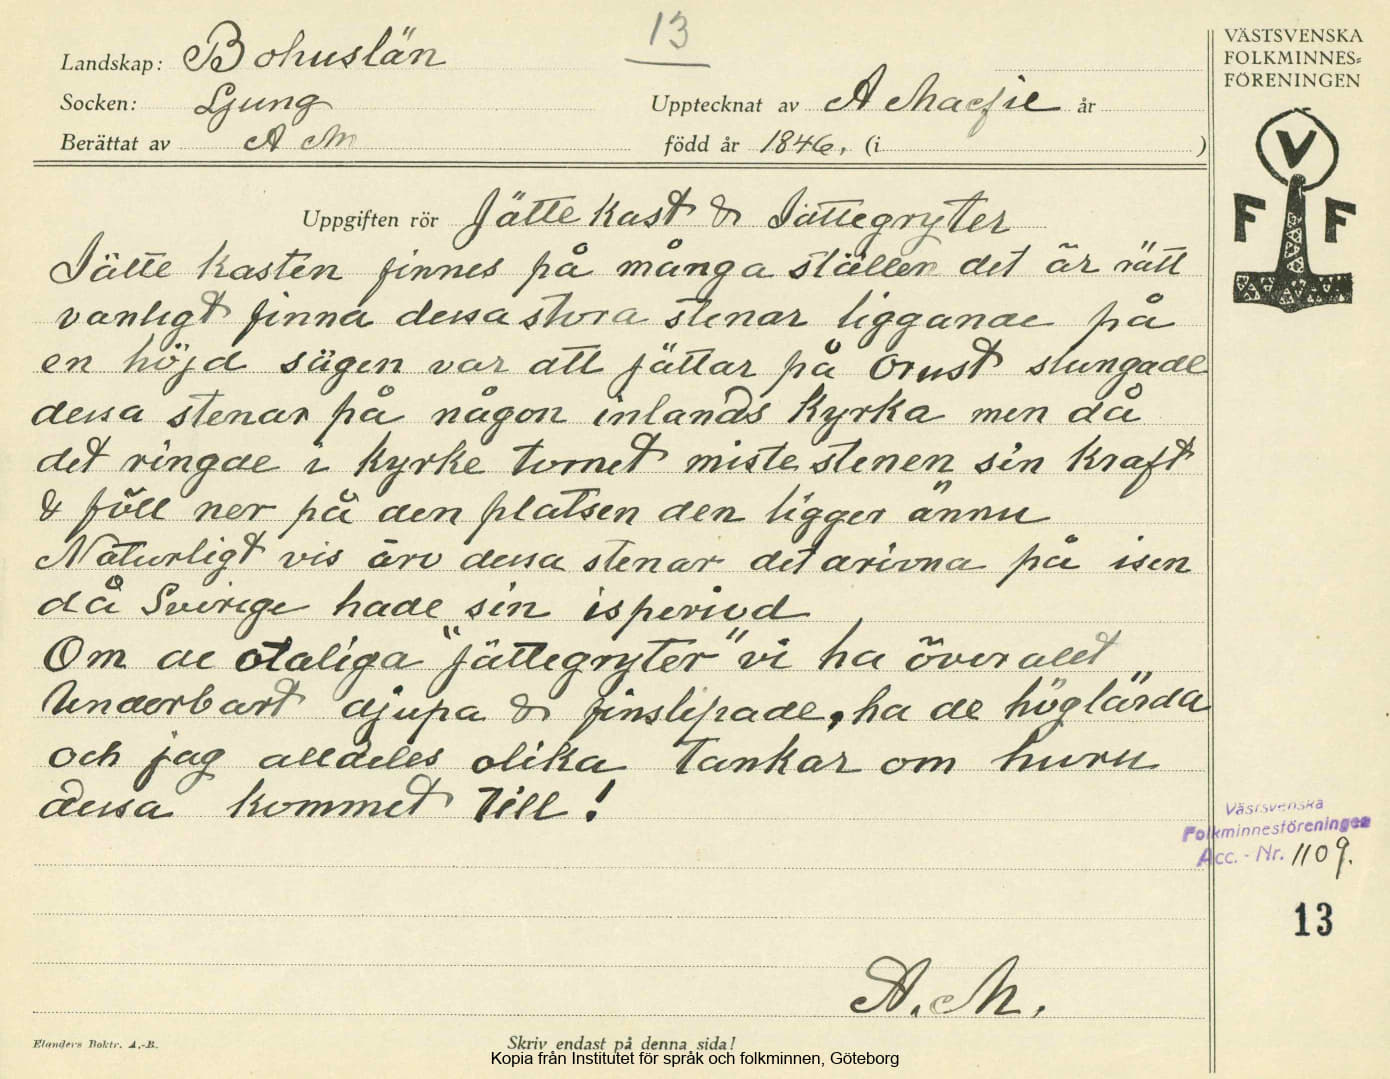 13
Landskap: Bohuslän
Socken: Ljung
Upptecknat av A Macfie år
Berättat av A M
född år 1846. (i )
VÄSTSVENSKA
FOLKMINNES=
FÖRENINGEN
V
F F
Uppgiften rör Jätte kast & Jättegryter
Jätte kasten finnes på många ställen det är rätt
vanligt finna dessa stora stenar liggande på
en höjd sägen var att jättar på Orust slungade
dessa stenar på någon inlands Kyrka men då
det ringde i kyrke tornet miste stenen sin kraft
& föll ner på den platsen den ligger ännu
Naturligt vis äro dessa stenar dit drivna på isen
då Sverige hade sin isperiod
Om de otaliga "jättegryter" vi ha överallt
Underbart djupa & finslipade, ha de höglärda
och jag alldeles olika tankar om huru
dessa kommet till!
Västsvenska
Folkminnesföreningen
Acc. - Nr. 1109.
13
A. M.
Elanders Boktr. A.-B.
Skriv endast på denna sida!
Kopia från Institutet för språk och folkminnen, Göteborg